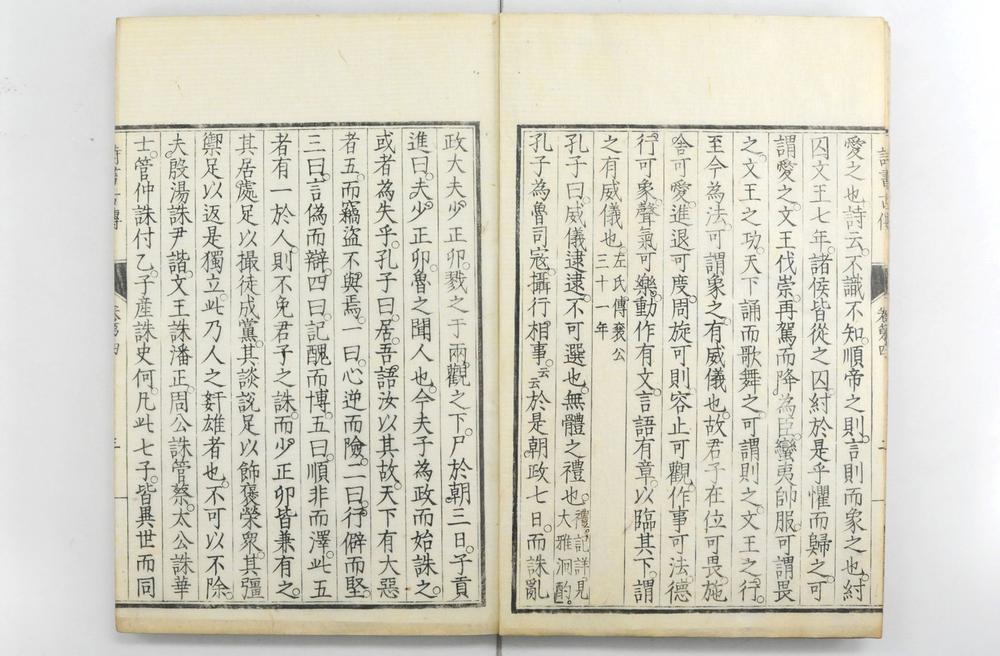 愛之也。詩云。不識不知。順帝之則。言則而象之也。紂
囚文王七年。諸侯皆從之囚。紂於是乎懼而歸之。可
謂愛之。文王伐崇。再駕而降為臣。蠻夷帥服。可謂畏
之。文王之功。天下誦而歌舞之。可謂則之。文王之行。
至今為法。可謂象之。有威儀也。故君子在位可畏。施
舍可愛。進退可度。周旋可則。容止可觀。作事可法。德
行可象。聲氣可樂。動作有文。言語有章。以臨其下。謂
之有威儀也。左氏傳襄公
三十一年
孔子曰。威儀逮逮。不可選也。無體之禮也。禮記。詳見
大雅泂酌。
孔子為魯司寇。攝行相事。云云於是朝政七日。而誅亂
政大夫少正卯。戮之于兩觀之下。尸於朝三日。子貢
進曰。夫少正卯。魯之聞人也。今夫子為政而始誅之。
或者為失乎。孔子曰。居。吾語汝以其故。天下有大惡
者五。而竊盜不與焉。一曰。心逆而險。二曰。行僻而堅。
三曰。言偽而辯。四曰。記醜而博。五曰。順非而澤。此五
者有一於人。則不免君子之誅。而少正卯皆兼有之。
其居處足以撮徒成黨。其談說足以飾褒榮眾。其彊
禦足以返是獨立。此乃人之奸雄者也。不可以不除。
夫殷湯誅尹諧。文王誅潘正。周公誅管蔡。太公誅華
士。管仲誅付乙。子產誅史何。凡此七子。皆異世而同